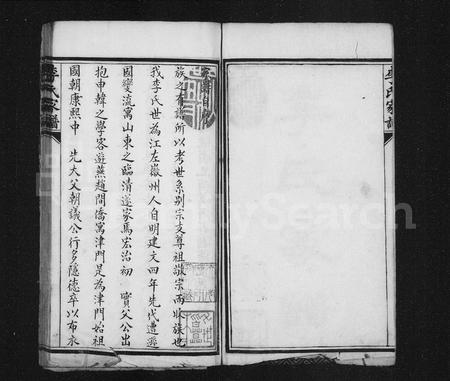 李氏家譜
族之有譜所以考世系別宗支尊祖敬宗而收族也
我李氏世為江左徽州人自明建文四年先代遭遜
國變流寓山東之臨清遂家焉宏治初 實父公出
抱申韓之學客遊燕趙間僑寓津門是為津門始祖
國朝康熙中 先大父朝議公行多隱德卒以布衣
李氏家譜
FamilySearch